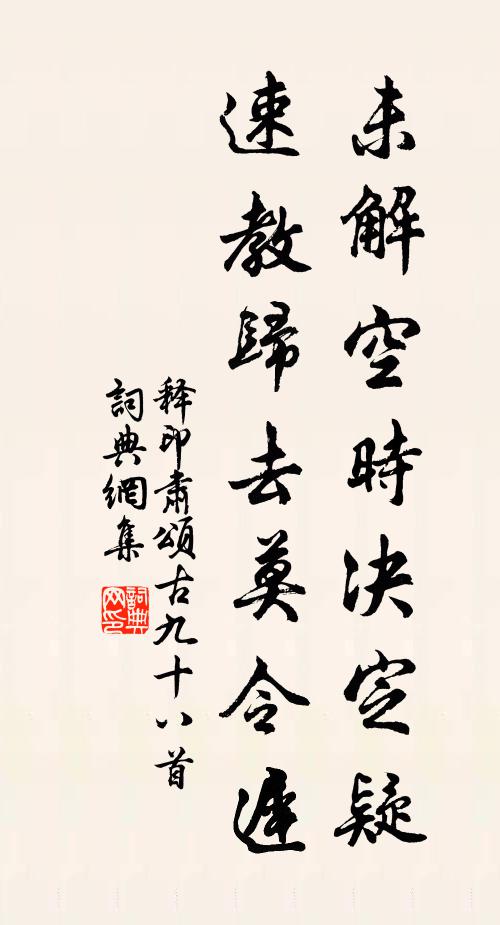 未解空時決定疑
速教歸去莫令遲
释印肅頌古九十八首
詞典網集
詞典網印